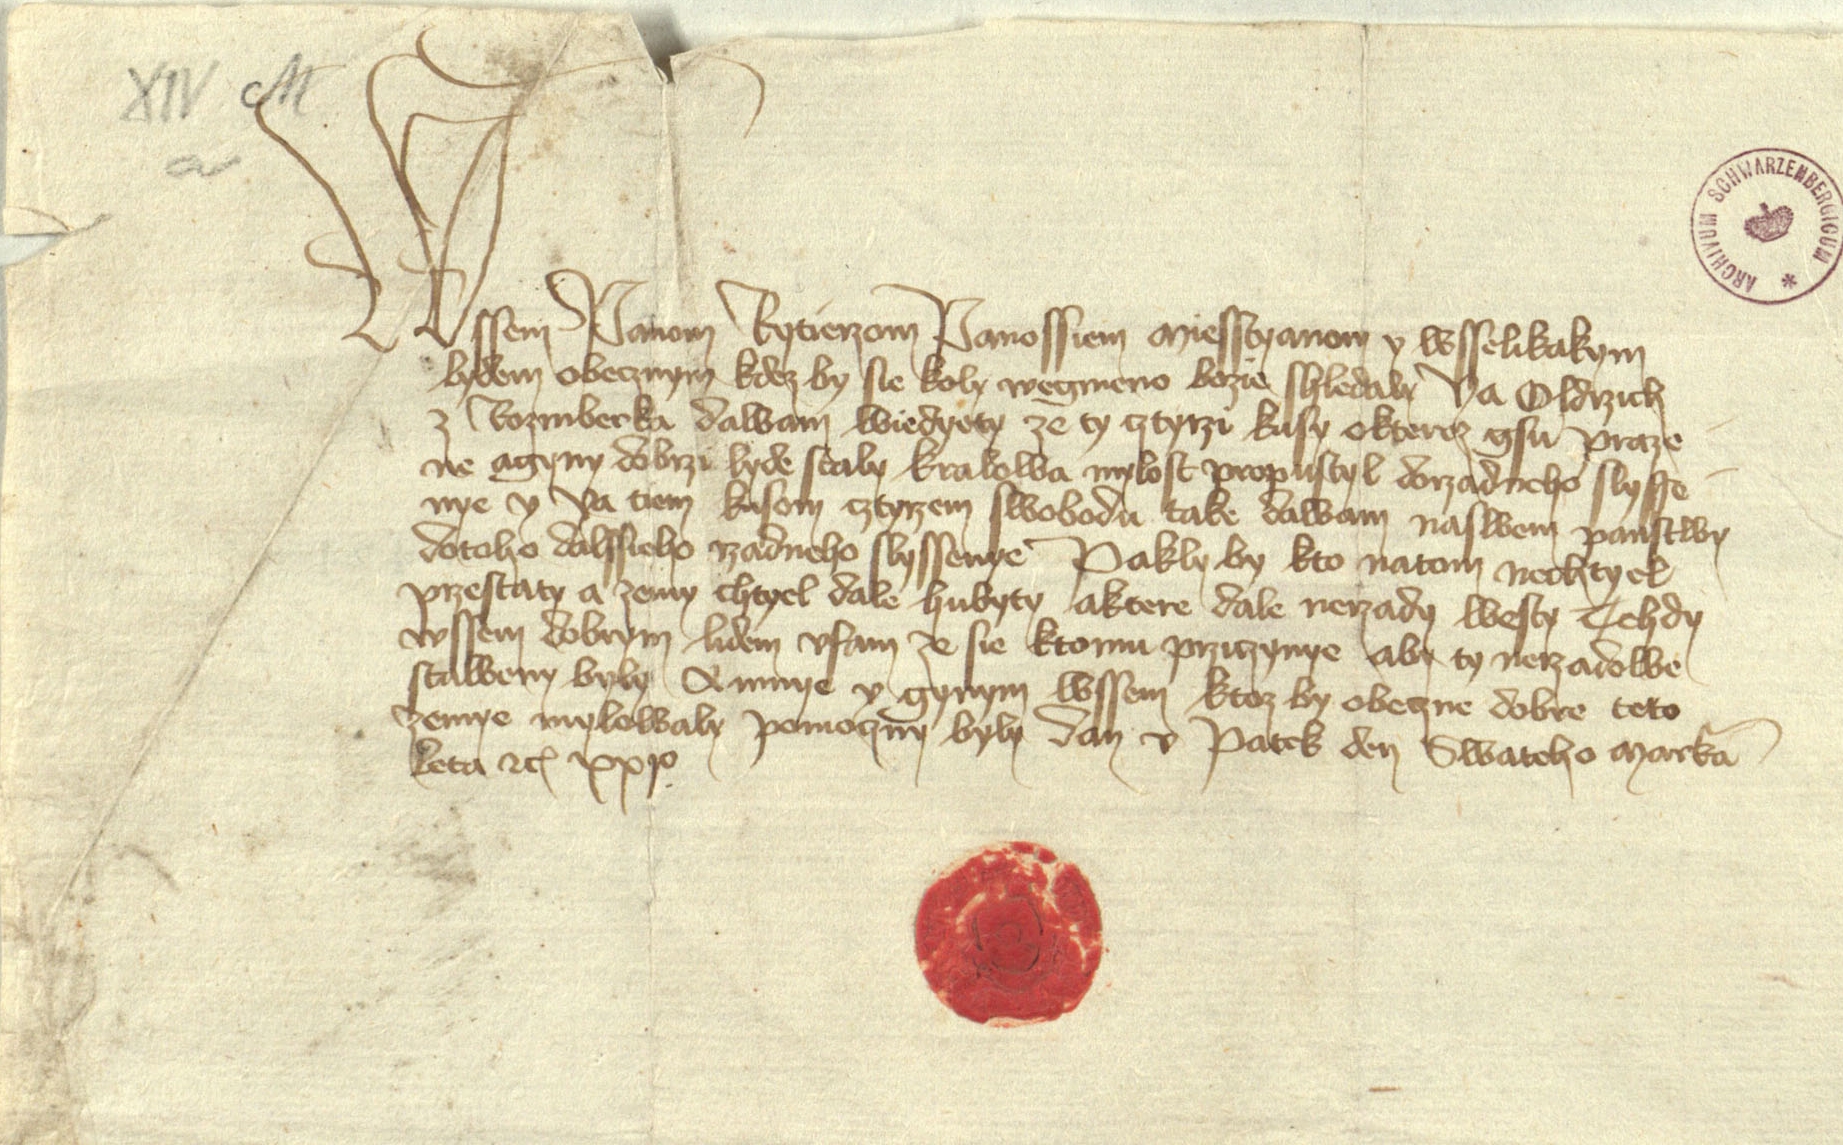 XIV M
a
ARCHIVUM SCHWARZENBERGICUM *
Wssem Panom Rytierzom Panossiem Miesstyanom y wsselikakym
lydem obecznym kdez by sie koly wegmeno bozie shledaly Ya Oldrzich
z Rozmberka dawam wiedyety ze ty cztyrzi kusy okterez gsu Praze
ne aginy dobrzi lyde staly kralowa mylost propustyl dorzadneho slysse
nye y Ya tiem kusom cztyrzem swobodu take dawam naswem panstwy
dotoho dalssieho rzadneho slyssenye Pakly by kto natom nechtyel
przestaty a zemy chtyel dale hubyty aktere dale nerzady westy Tehdy
wssem dobrym lidem vfam ze sie ktomu prziczynye aby ty nerzadowe
staweny byly A mnye y gynym wssem ktoz by obeczne dobre teto
zemye mylowaly pomoczny byly Dan v Patek den Swateho Marka
leta etc xxjo